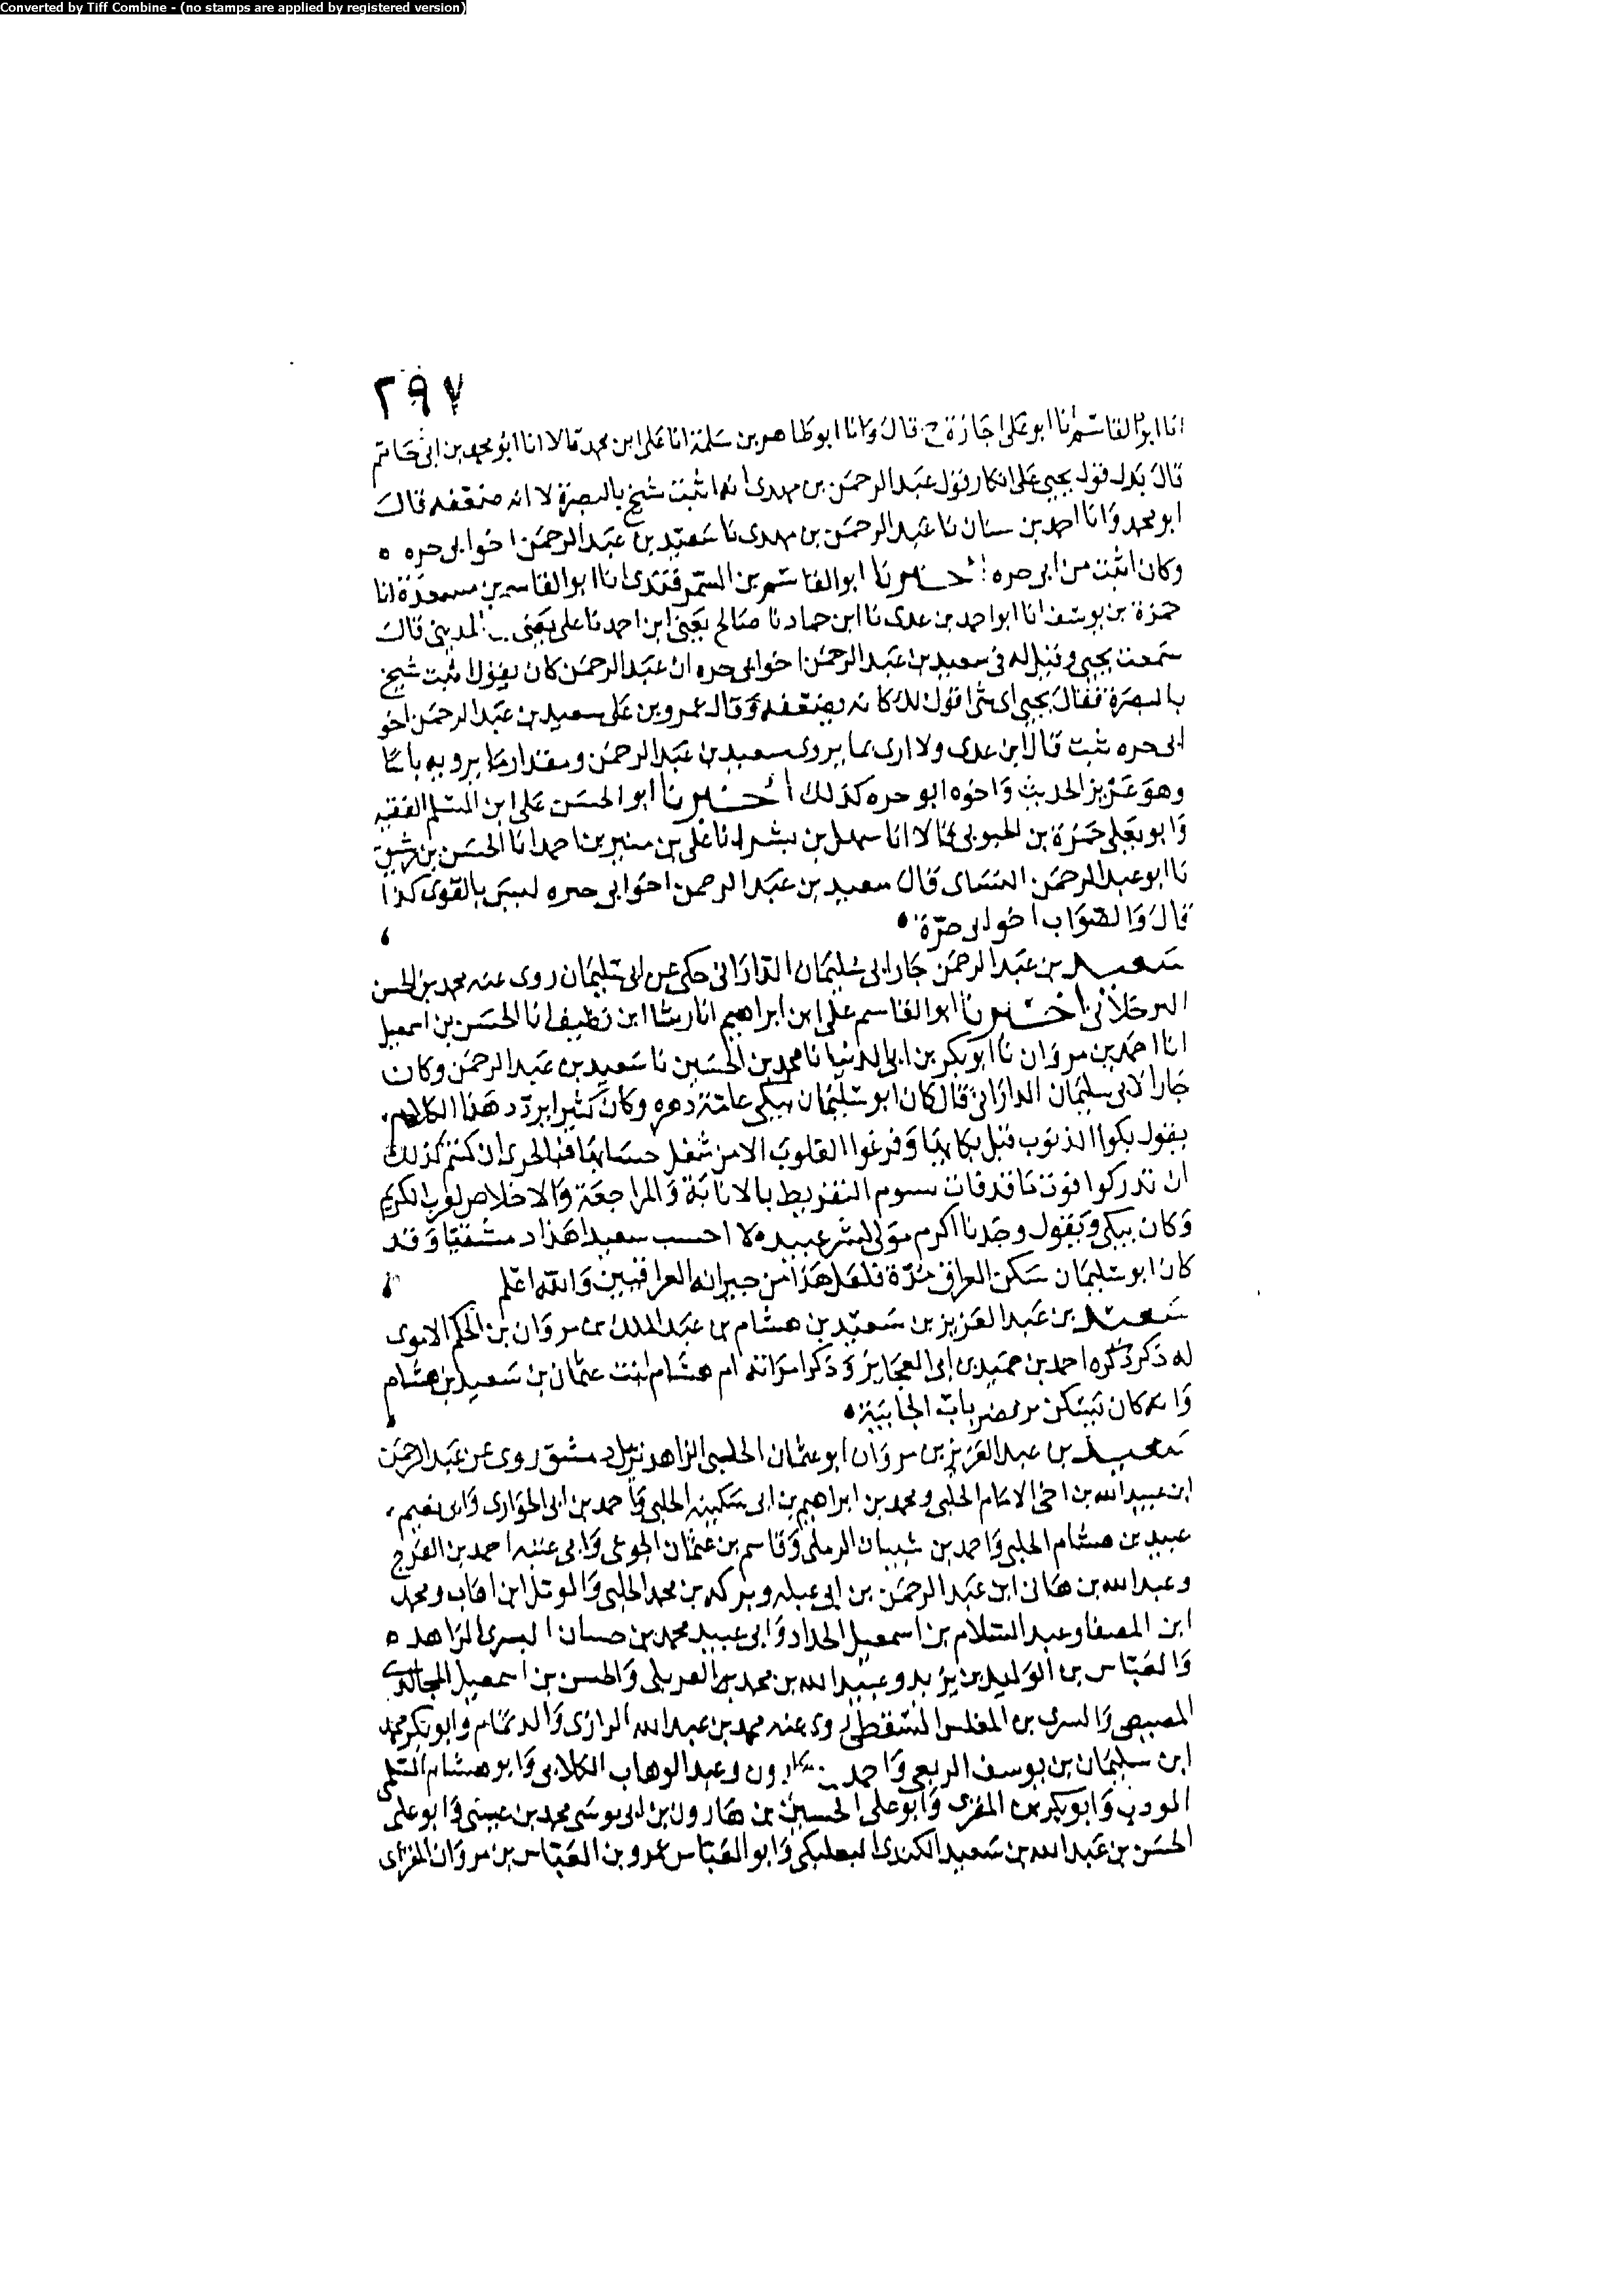 Converted by Tiff Combine - (no stamps are applied by registered version)
٢٩٧
انا ابو القاسم انا ابو على اجازة ح قال وانا ابو طاهر بن سلمة انا على ابن محمد قالا انا ابو محمد بن ابى حاتم
قال يدل قول يحيى على انكار قول عبد الرحمن بن مهدى انه اثبت شيخ بالبصرة لا انه ضعفه قال
ابو محمد وانا احمد بن سنان نا عبد الرحمن بن مهدى نا سعيد بن عبد الرحمن اخو ابى حره ه
وكان اثبت من ابى حره اخبرنا ابو القاسم بن السمرقندى انا ابو القاسم بن مسعدة انا
حمزة بن يوسف انا ابو احمد بن عدى نا ابن حماد نا صالح يعنى ابن احمد نا على يعنى بن المدينى قال
سمعت يحيى وقيل له فى سعيد بن عبد الرحمن اخو ابى حره ان عبد الرحمن كان يقول اثبت شيخ
بالبصرة فقال يحيى اى شى اقول لك كانه يضعفه وقال عمرو بن على سعيد بن عبد الرحمن اخو
ابى حره ثبت قال ابن عدى ولا ارى بما يروى سعيد بن عبد الرحمن ومقدار ما يرويه باسًا
وهو عزيز الحديث واخوه ابو حره كذلك اخبرنا ابو الحسن على ابن المسلم الفقيه
وابو يعلى حمزة بن الحبوبى قالا انا سهل بن بشر انا على بن منير بن احمد انا الحسن بن رشيق
نا ابو عبد الرحمن النسائى قال سعيد بن عبد الرحمن اخو ابى حره ليس بالقوى كذا
قال والصواب اخو ابى حرّة
سعيد بن عبد الرحمن جار ابى سليمان الدارانى حكى عن ابى سليمان روى عنه محمد بن الحسن
البرجلانى اخبرنا ابو القاسم على ابن ابراهيم انا رشا ابن نظيف انا الحسن بن اسمعيل
انا احمد بن مروان نا ابو بكر بن ابى الدنيا نا محمد بن الحسين نا سعيد بن عبد الرحمن وكان
جارا لابى سليمان الدارانى قال كان ابو سليمان يبكى عامة دهره وكان كثيرا يردد هذا الكلام
يقول بكوا الذنوب قبل بكائها وفرغوا القلوب الا من شغل حسابها فبالحرى ان كنتم كذلك
ان تدركوا فوت ما قد فات بسوم التفريط بالانابة والمراجعة والاخلاص لرب الكريم
وكان يبكى ويقول وجدنا اكرم مولى لشر عبيد لا احسب سعيدا هذا دمشقيا وقد
كان ابو سليمان سكن العراق مدّة فلعل هذا من جيرانه العراقيين والله اعلم
سعيد بن عبد العزيز بن سعيد بن هشام بن عبد الملك بن مروان بن الحكم الاموى
له ذكر ذكره احمد بن حميد بن ابى العجايز وذكر امراته ام هشام ابنت عثمان بن سعيد بن هشام
وانه كان يسكن بباب الجابية
سعيد بن عبد العزيز بن مروان ابو عثمان الحلبى الزاهد نزيل دمشق روى عن عبد الرحمن
ابن عبيد الله بن اخى الامام الحلبى ومحمد بن ابراهيم بن ابى سكينه الحلبى واحمد بن ابى الحوارى وابى نعيم
عبيد بن هشام الحلبى واحمد بن شيبان الرملى وقاسم بن عثمان الجوعى وابى عتبه احمد بن الفرج
وعبد الله بن هانى ابن عبد الرحمن بن ابى عبله وبركه بن محمد الحلبى والمومل ابن اهاب ومحمد
ابن المصفا وعبد السلام بن اسمعيل الحداد وابى عبيد محمد بن حسان البسرى الزاهد ه
والعباس بن الوليد بن يزيد وعبيد الله بن محمد بن الفريابى والحسن بن اسمعيل المجالدى
المصيصى والسرى بن المغلس السقطى روى عنه محمد بن عبد الله الرازى والد تمام وابو بكر محمد
ابن سليمان بن يوسف الربعى واحمد بن هارون وعبد الوهاب الكلابى وابو هشام السلمى
المودب وابو بكر بن المقرى وابو على الحسين بن هارون بن ابى موسى محمد بن عيسى وابو على
الحسن بن عبد الله بن سعيد الكندى البعلبكى وابو العباس عمرو بن العباس بن مروان الفزارى